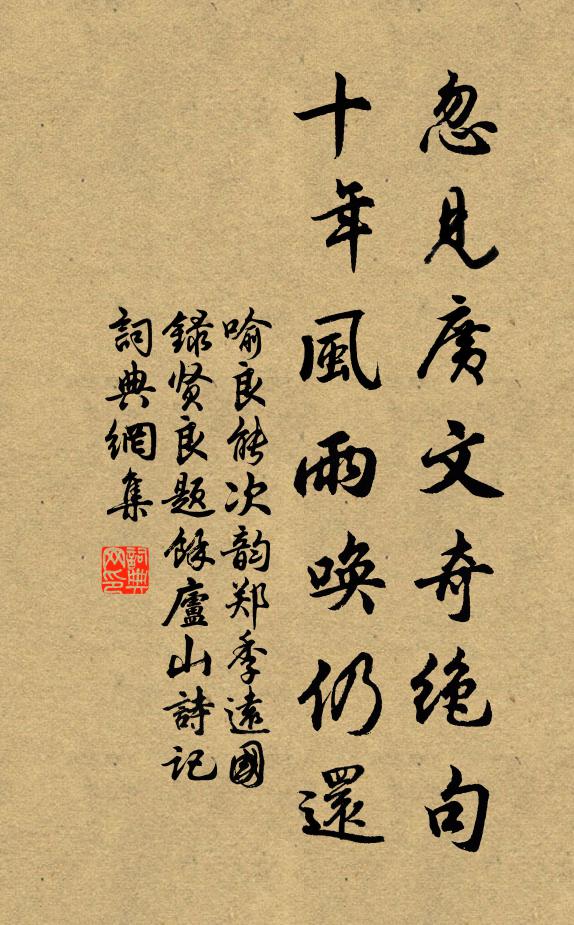 忽見廣文奇絶句
十年風雨喚仍還
喻良能次韵郑季遠國
録贤良题餘廬山詩记
詞典網集
詞典
网印